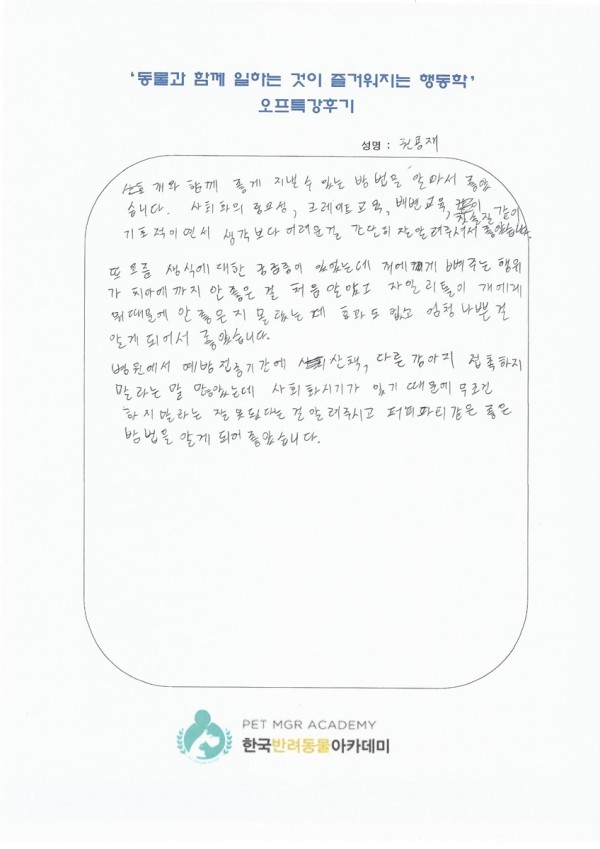 '동물과 함께 일하는 것이 즐거워지는 행동학'
오프특강후기
성명 :
개와 함께 좋게 지낼 수 있는 방법을 알아서 좋았
습니다. 사회화의 중요성, 크레이트교육, 배변교육, 칫솔질 같이
기초적이면서 생각보다 어려운걸 간단히 잘 알려주셔서 좋았습니다.
또 요즘 생식에 대한 궁금증이 있었는데 개에게 뼈주는 행위
가 치아에까지 안좋은 걸 처음 알았고 자일리톨이 개에게
뭐때문에 안좋은지 몰랐는데 효과도 없고 엄청 나쁜 걸
알게 되어서 좋았습니다.
병원에서 예방접종기간에 산책, 다른강아지 접촉하지
말라는 말 많았는데 사회화시기가 있기 때문에 무조건
하지말라는 잘못됬다는 걸 알려주시고 퍼피파티같은 좋은
방법을 알게 되어 좋았습니다.
PET MGR ACADEMY
한국반려동물아카데미